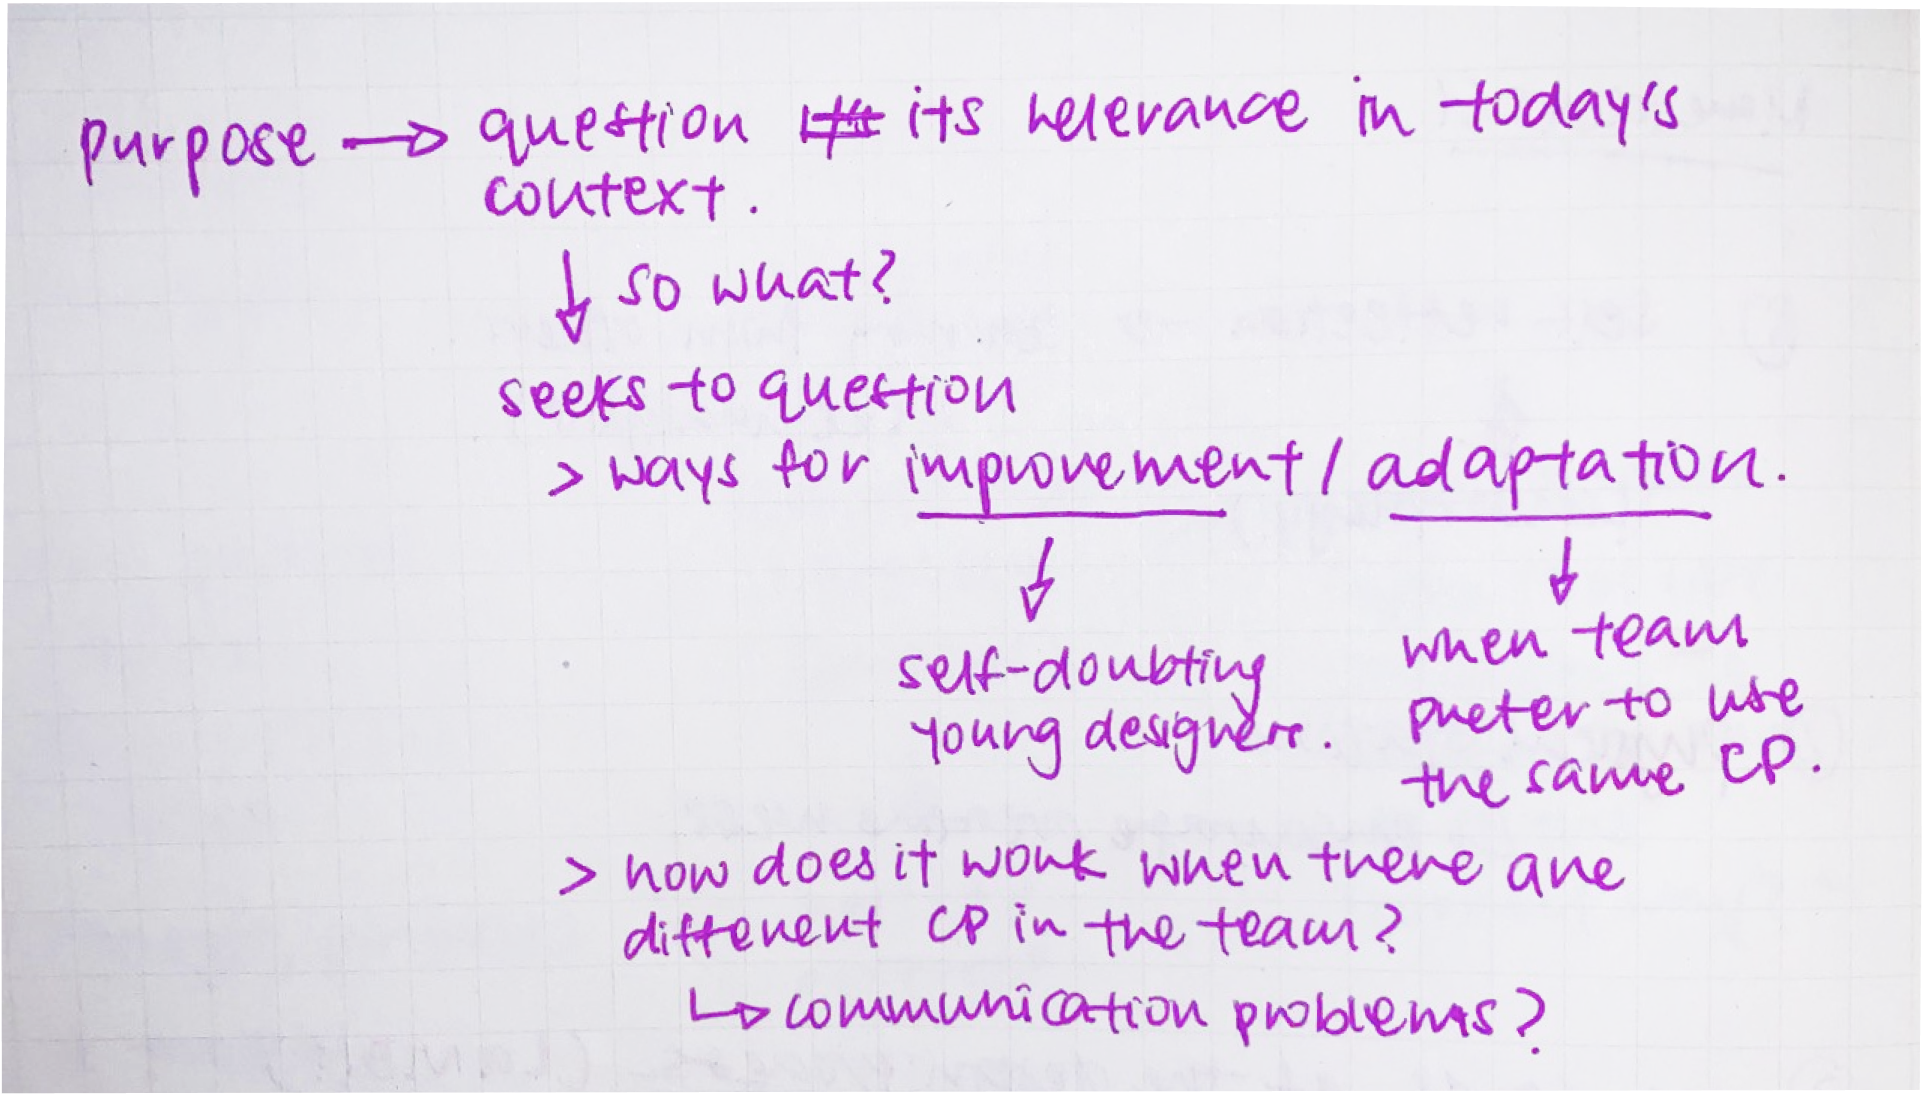 purpose → question its its relevance in today's
context.
↓ so what?
seeks to question
> ways for improvement / adaptation.
↓ ↓
self-doubting
young designers.
when team
prefer to use
the same CP.
> how does it work when there are
different CP in the team?
↳ communication problems?